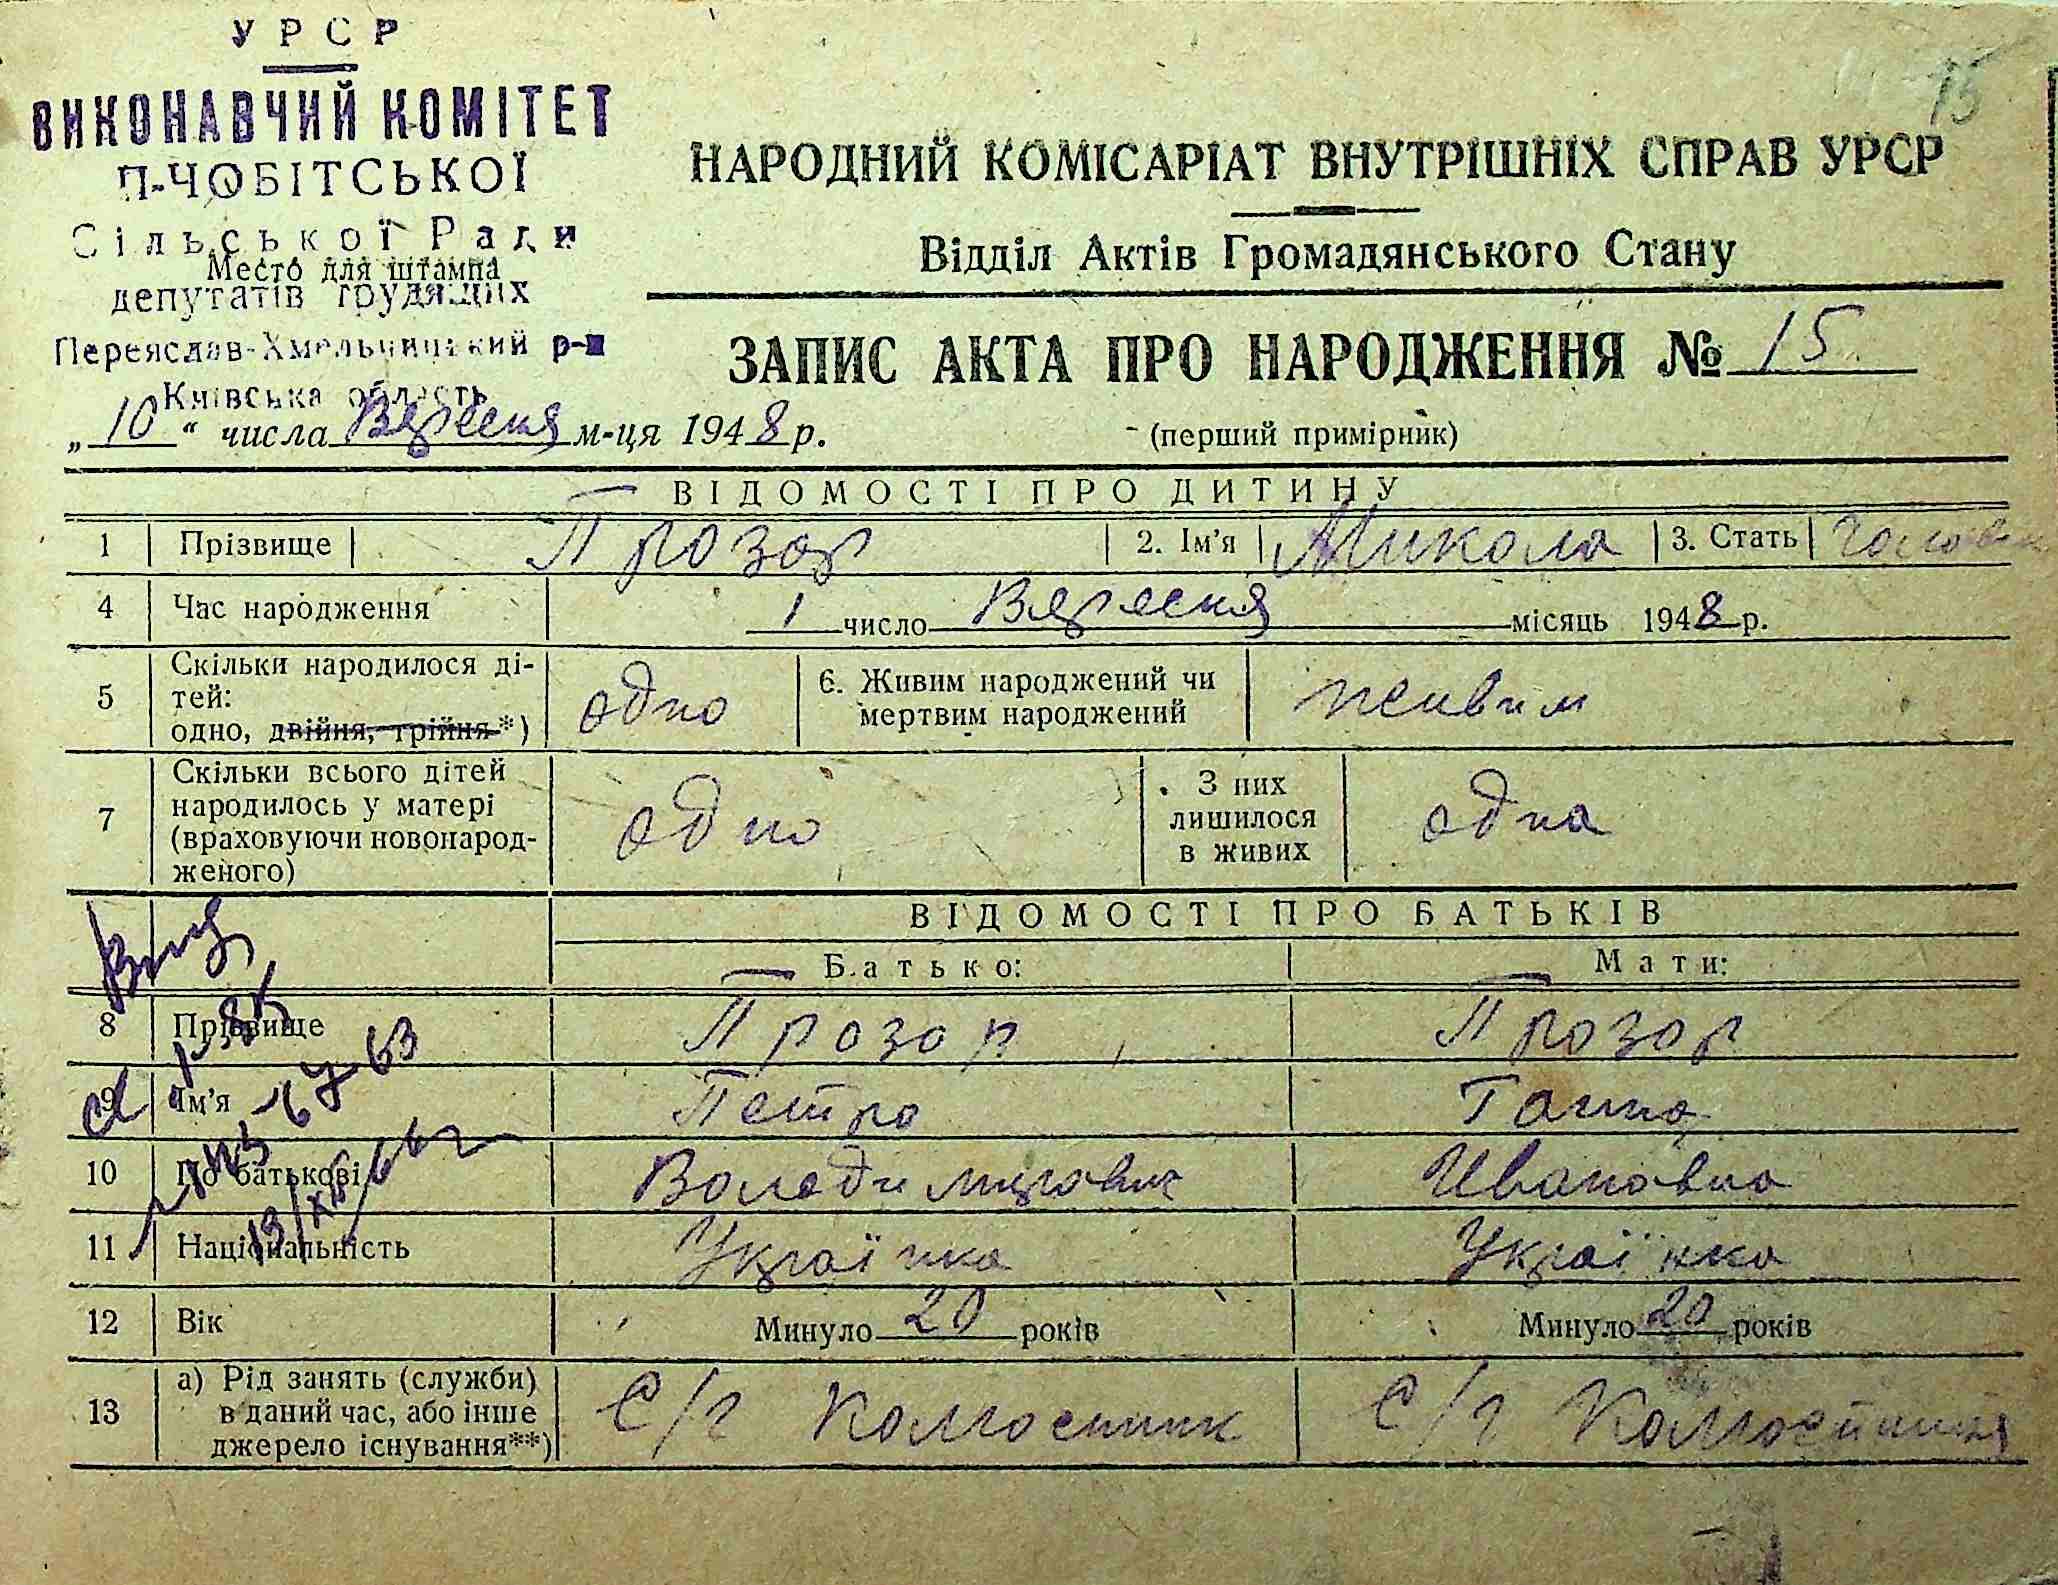 УРСР
ВИКОНАВЧИЙ КОМІТЕТ
П-ЧОБІТСЬКОЇ
Сільської Ради
Место для штампа
депутатів трудящих
Переяслав-Хмельницький р-н
Київська область
15
НАРОДНИЙ КОМІСАРІАТ ВНУТРІШНІХ СПРАВ УРСР
Відділ Актів Громадянського Стану
ЗАПИС АКТА ПРО НАРОДЖЕННЯ № 15
„10“ числа Вересня м-ця 1948 р.
(перший примірник)
ВІДОМОСТІ ПРО ДИТИНУ
1 Прізвище Прозор 2. Ім'я Микола 3. Стать
4 Час народження 1 число Вересня місяць 1948 р.
5 Скільки народилося ді-
тей:
одно, двійня, трійня*) одно 6. Живим народжений чи
мертвим народжений живим
7 Скільки всього дітей
народилось у матері
(враховуючи новонарод-
женого) одно З них
лишилося
в живих одна
ВІДОМОСТІ ПРО БАТЬКІВ
Батько: Мати:
8 Прізвище Прозор Прозор
9 Ім'я Петро Ганна
10 По батькові Володимирович Ивановна
11 Національність Українка Українка
12 Вік Минуло 20 років Минуло 20 років
13 а) Рід занять (служби)
в даний час, або інше
джерело існування**) С/г Колгоспник С/г Колгоспниця